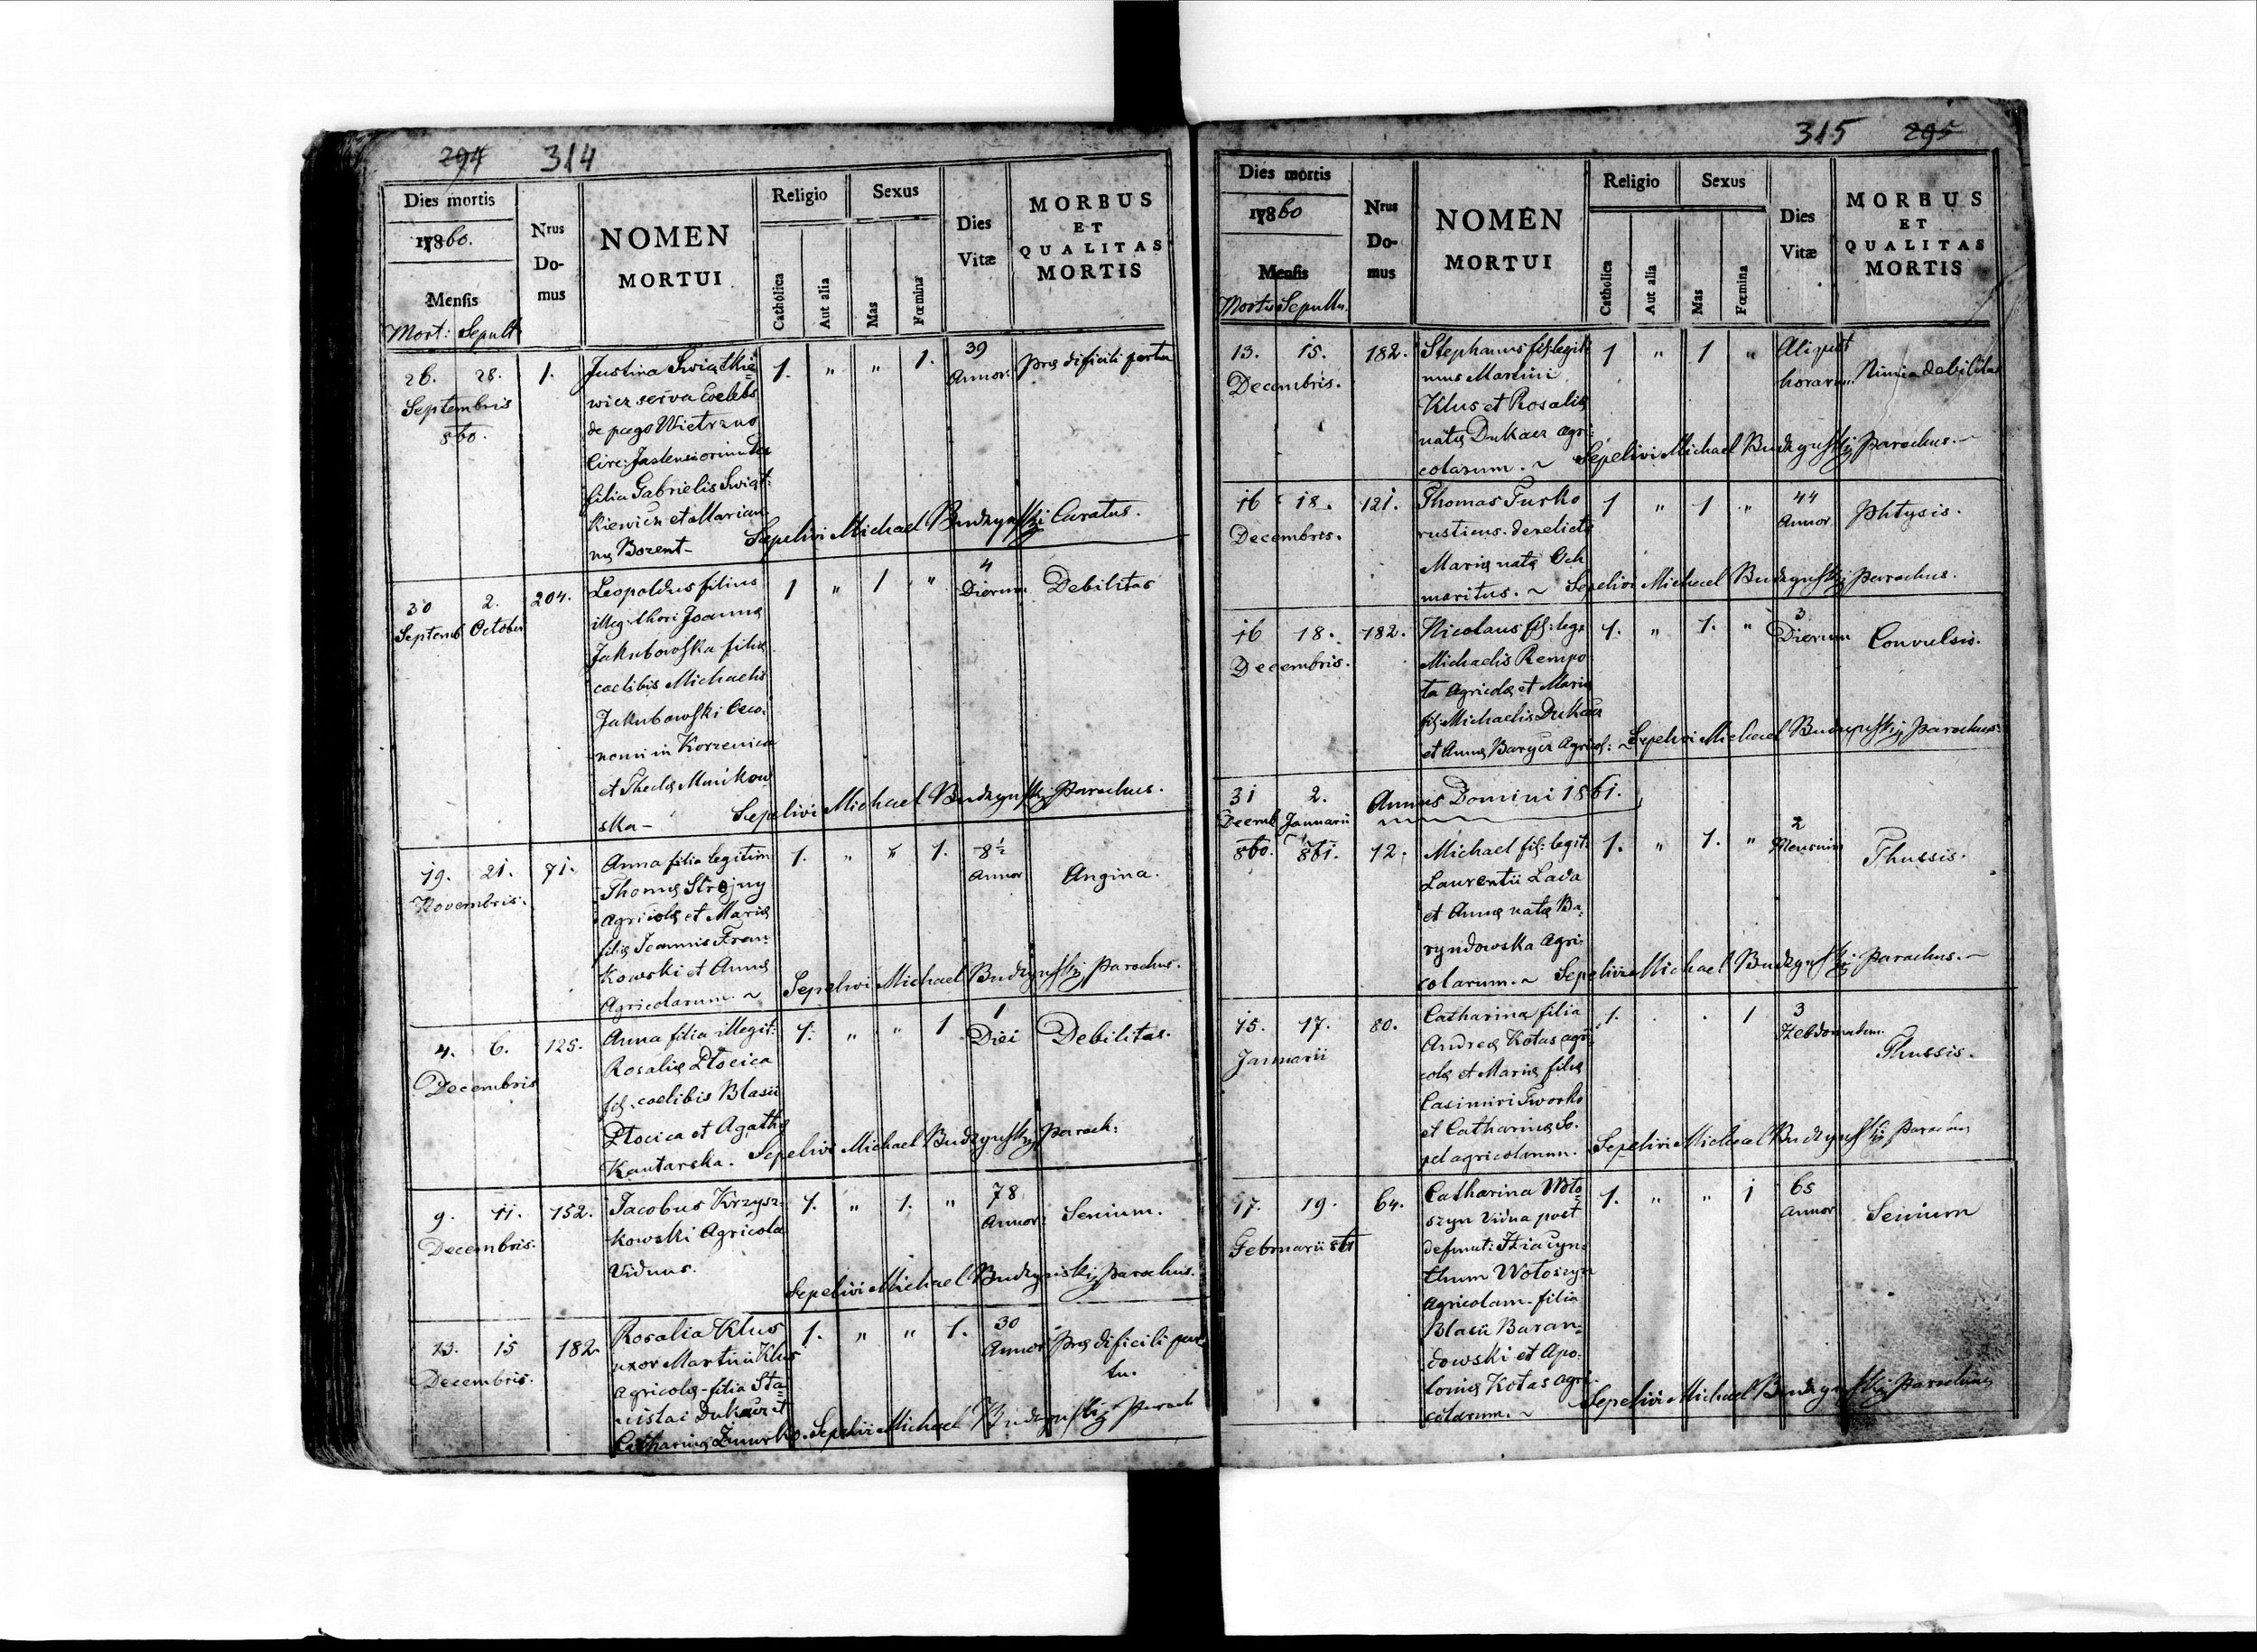 294 314
Dies mortis
1860.
Mensis
Mort: Sepult
Nrus
Do-
mus
NOMEN
MORTUI
Religio
Catholica
Aut alia
Sexus
Mas
Fœmina
Dies
Vitæ
MORBUS
ET
QUALITAS
MORTIS
26. 28. 1. Justina Swiątkie 1. " " 1. 39 præ dificili partu
Septembris wicz serva coelebs Annor:
860. de pago Wietrzno
Circ: Jaslensi oriunda
filia Gabrielis Swiąt:
kiewicz et Marian
næ Bozent-
Sepelivi Michael Budzynski Curatus.
30 2. 204. Leopoldus filius 1 " 1 " 4 Debilitas
Septemb October illeg: thori Joannæ Dierum
Jakubowska filiæ
coelibis Michaelis
Jakubowski Oeco:
nomi in Korzenica
et Theclæ Munkow
ska-
Sepelivi Michael Budzynski Parochus.
19. 21. 71. Anna filia legitim 1. " " 1. 8½ Angina.
Novembris. Thomæ Strojny Annor
Agricolæ et Mariæ
filiæ Joannis Fran
kowski et Annæ
Agricolarum. ~
Sepelivi Michael Budzynski Parochus.
4. 6. 125. Anna filia illegit: 1. " " 1 1 Debilitas.
Decembris Rosaliæ Płocica Diei
fil. coelibis Blasii
Płocica et Agathæ
Kantarska.
Sepelivi Michael Budzynski Paroch:
9. 11. 152. Jacobus Krzysz: 1. " 1. " 78 Senium.
Decembris. kowski Agricola Annor:
Viduus.
Sepelivi Michael Budzynski Parochus.
13. 15 182 Rosalia Klus 1. " " 1. 30 præ dificili par
Decembris. uxor Martini Klus Annor tu.
agricolæ - filia Sta
nislai Dukacz et
Catharinæ Zmurko.
Sepelivi Michael Budzynski Paroch
315 295
Dies mortis
1860
Mensis
Mortu Sepultu.
Nrus
Do-
mus
NOMEN
MORTUI
Religio
Catholica
Aut alia
Sexus
Mas
Fœmina
Dies
Vitæ
MORBUS
ET
QUALITAS
MORTIS
13. 15. 182. Stephanus fil: legit: 1 " 1 " Aliquot Nimia debilitas
Decembris. mus Martini horarum
Klus et Rosaliæ
natæ Dukacz agri:
colarum. ~
Sepelivi Michael Budzynski Parochus. ~
16 18. 121. Thomas Turko 1 " 1 " 44 Phtysis.
Decembris. rusticus. derelictæ Annor
Mariæ natæ Och
maritus. ~
Sepelivi Michael Budzynski Parochus.
16 18. 182. Nicolaus fil: leg: 1. " 1. " 3 Convulsis.
Decembris. Michaelis Rempo Dierum
ta Agricolæ et Mariæ
fil: Michaelis Dukacz
et Annæ Barycz Agricol: ~
Sepelivi Michael Budzynski Parochus.
31 2. Annus Domini 1861.
Decemb Januarii
860. 861. 12. Michael fil: legit: 1. " 1. " 2 Thussis.
Laurentii Lada Mensium
et Annæ natæ Ba:
ryndowska agri:
colarum. ~
Sepelivi Michael Budzynski Parochus. ~
15. 17. 80. Catharina filia 1. . . 1 3 Thussis.
Januarii Andreæ Kotas agri: Hebdomadum.
colæ et Mariæ filiæ
Casimiri Tworko
et Catharinæ So.
pel agricolarum.
Sepelivi Michael Budzynski Parochus
17. 19. 64. Catharina Woło 1. " " 1 65 Senium
Februarii 861 szyn Vidua post Annor
defunct: Hiacyn:
thum Wołoszyn
Agricolam. filia
Blasii Baran:
dowski et Apo:
loniæ Kotas agri:
colarum. ~
Sepelivi Michael Budzynski Parochus